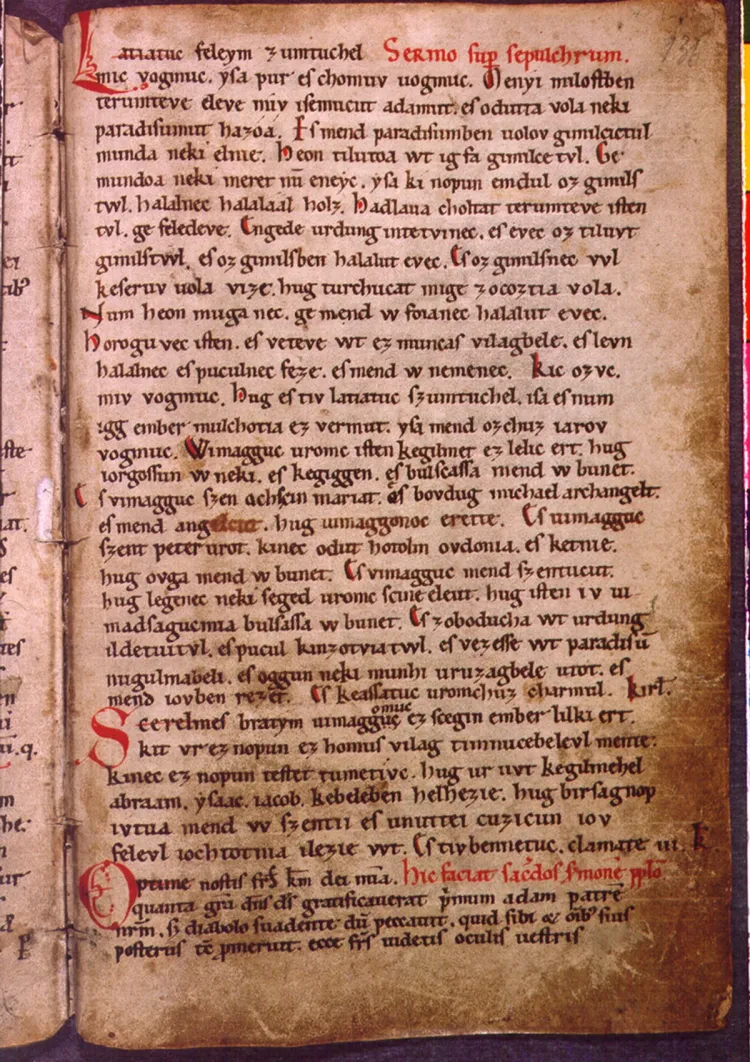 Latiatuc feleym zumtuchel Sermo sup sepulchrum.
mic vogmuc. ysa pur es chomuv uogmuc. Menyi milostben
terumteve eleve miv isemucut adamut. es odutta vola neki
paradisumut hazoa. Es mend paradisumben uolov gimilcictul
munda neki elnie. Heon tilutoa wt ig fa gimilce tvl. Ge
mundoa neki meret nū eneyc. ysa ki nopun emdul oz gimils
twl. halalnec halalaal holz. Hadlaua choltat terumteve isten
tvl. ge feledeve. Engede urdung intetvinec. es evec oz tiluvt
gimilstwl. es oz gimilsben halalut evec. Es oz gimilsnec vvl
keseruv uola vize. hug turchucat mige zocoztia vola.
Num heon muga nec. ge mend w foianec halalut evec.
Horogu vec isten. es veteve wt ez muncas vilagbele. es levn
halalnec es puculnec feze. es mend w nemenec. Kic ozvc.
miv vogmuc. Hug es tiv latiatuc szumtuchel. isa es num
igg ember mulchotia ez vermut. ysa mend ozchuz iarov
vogmuc. Wimagguc uromc isten kegilmet ez lelic ert. hug
iorgossun w neki. es kegiggen. es bulsassa mend w bunet.
Es vimagguc szen achscin mariat. es bovdug michael archangelt.
es mend angelcut. hug uimaggonoc erette. Es uimagguc
szent peter urot. kinec odut hotolm ovdonia. es ketnie.
hug ovga mend w bunet. Es vimagguc mend szentucut.
hug legenec neki seged uromc scine eleut. hug isten iv ui
madsagucmia bulsassa w bunet. Es zoboducha wt urdung
ildetuitvl. es pucul kinzotviatwl. es vezesse wt paradisū
nugulmabeli. es oggun neki munhi uruzagbele utot. es
mend iovben rezet. Es keassatuc uromchuz charmul. kirł.
Scerelmes bratym uimagguc omuc ez scegin ember lilki ert.
kit vr ez nopun ez homus vilag timnucebelevl mente.
kinec ez nopun testet tumetivc. hug ur uvt kegilmehel
abraam. ysaac. iacob. kebeleben helhezie. hug birsagnop
ivtua mend w szentii es unuttei cuzicun iov
felevl iochtotnia ilezie wt. Es tivbennetuc. clamate iii. K.
Optime nostis frs km dei mia. hic faciat sacdos smone pplo
quanta gra dns ds gratificauerat pmum adam patrē
nrm. s diabolo suadente dū peccauit. quid sibi & oib suis
posteris pmeruit. ecce frs uidetis oculis uestris